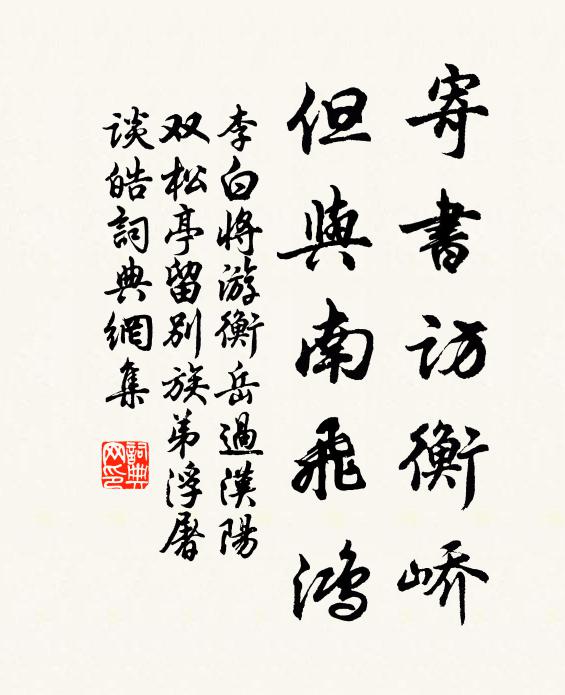 寄書訪衡嶠
但與南飛鴻
李白将游衡岳過漢陽
双松亭留别族弟浮屠
谈皓詞典網集
詞典网印